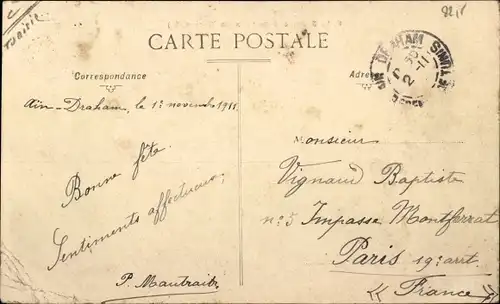 Tunisie
82,15
CARTE POSTALE
Correspondance
Adres
DRAHAM
TUNIS
2 11
Aïn-Draham, le 1er novembre 1911.
Bonne fête.
Sentiments affectueux,
P. Mautraits
Monsieur
Vignaud Baptiste
no 5 Impasse Montferrat
Paris 19e arrt
« France »